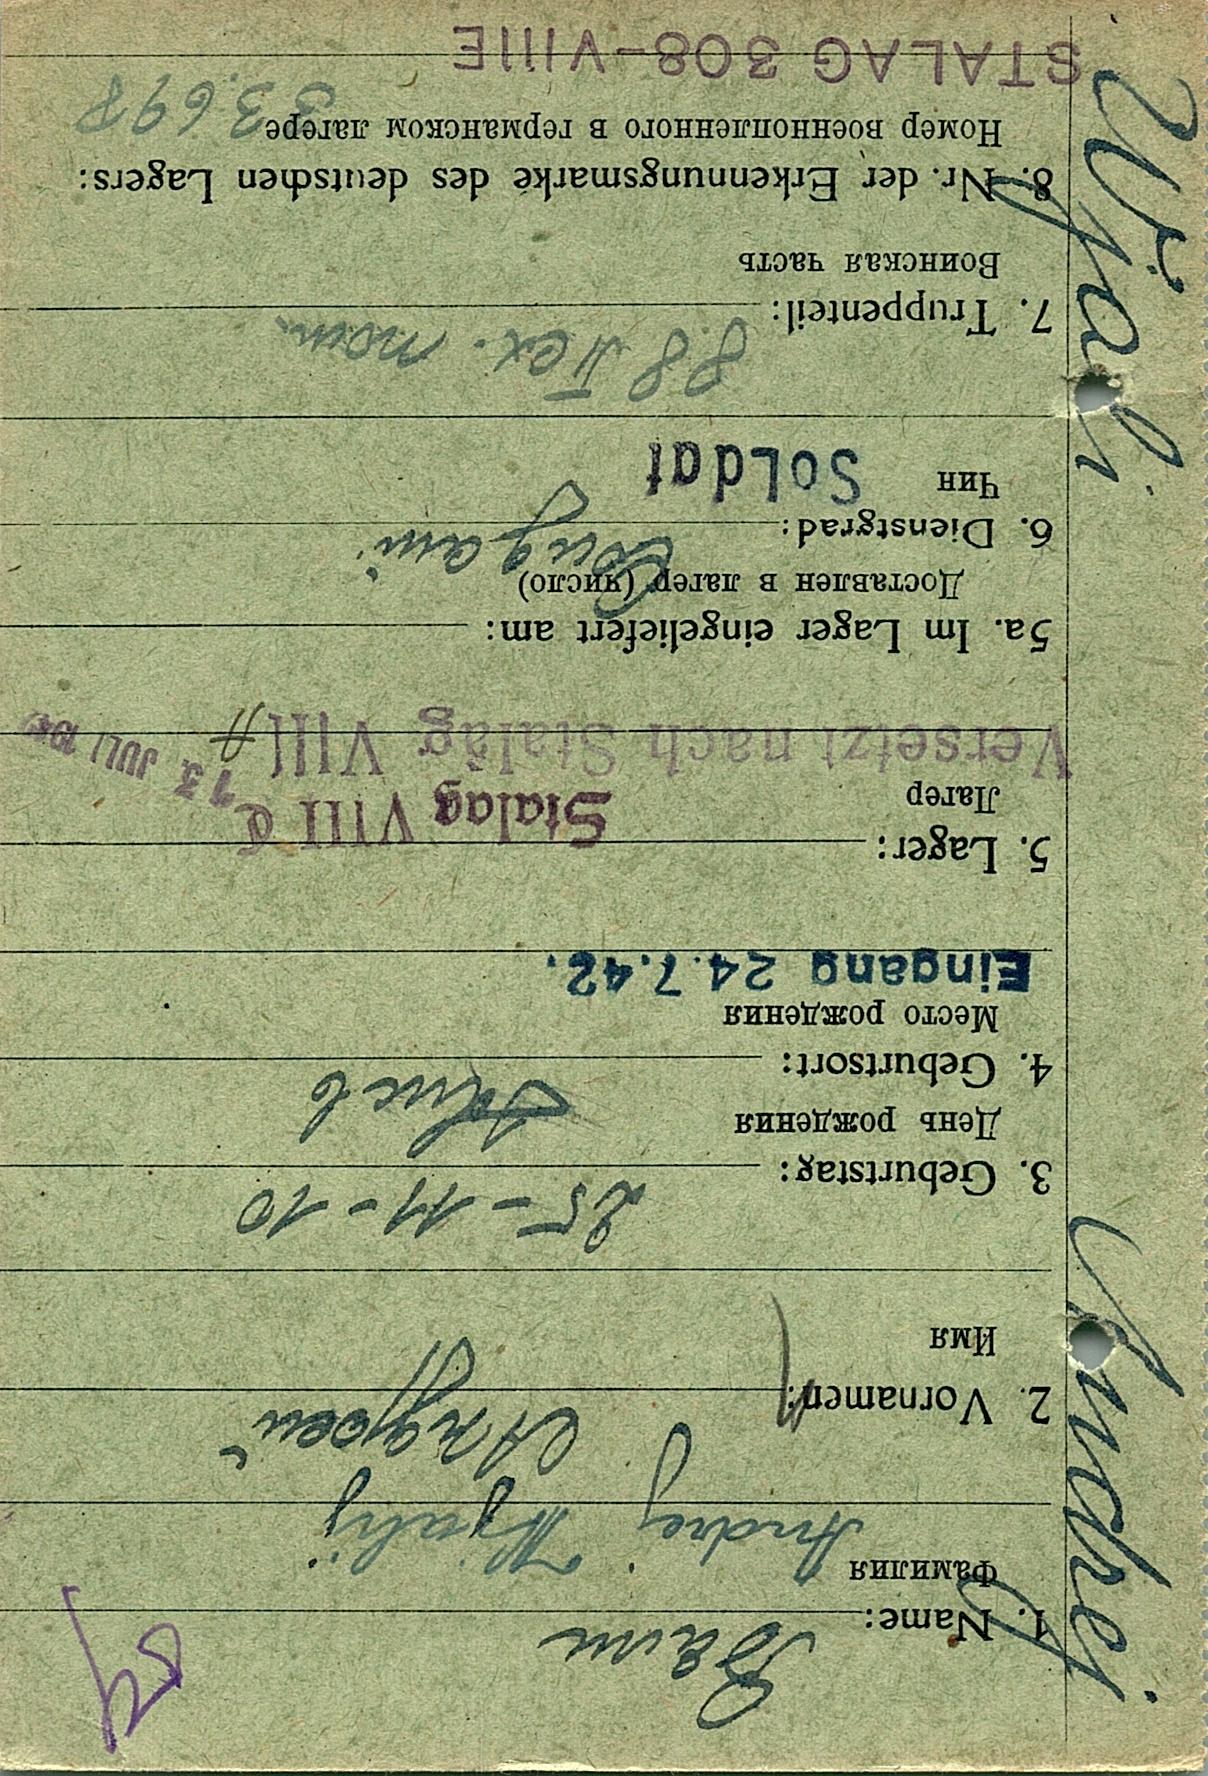 1. Name:
Фамилия
Andrej Wjalij
2. Vornamen:
Андрей
Имя
3. Geburtstag:
25-11-10
День рождения
4. Geburtsort:
Место рождения
Eingang 24.7.42.
5. Lager:
Stalag VIII C
Лагер
Versetzt nach Stalag VIII A 13. JULI 194
5a. Im Lager eingeliefert am:
Доставлен в лагер (число)
6. Dienstgrad:
Чин Soldat
7. Truppenteil:
88
Воинская часть
8. Nr. der Erkennungsmarke des deutschen Lagers:
Номер военнопленного в германском лагере 33698
STALAG 308-VIIIE
Wjali Andrej